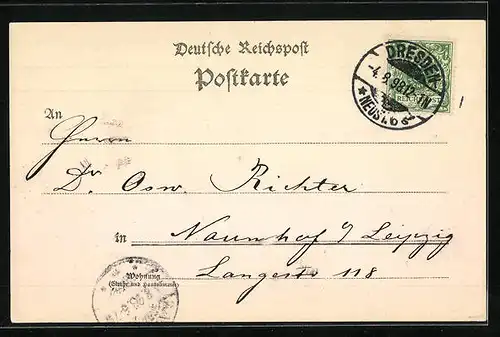 Deutsche Reichspost
Postkarte
DRESDEN
-4.8.98.12-1N
*NEUST.6
An
Herrn
Dr. Osw. Richter
in Naunhof b/ Leipzig
Wohnung
(Straße und Hausnummer)
Langestr 118